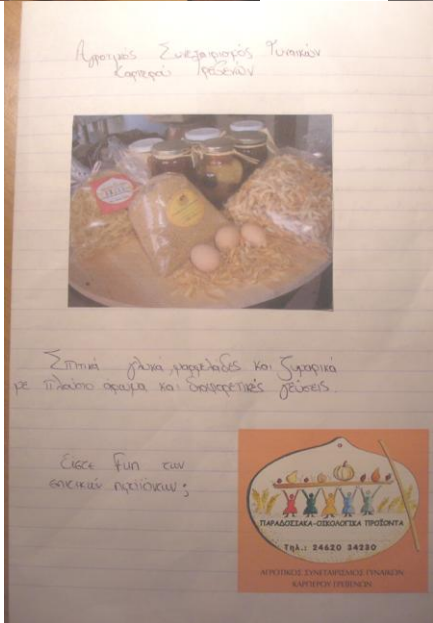 Αγροτικός Συνεταιρισμός Γυναικών
Καρπερού Γρεβενών
Σπιτικά γλυκά, μαρμελάδες και ζυμαρικά
με πλούσιο άρωμα και διαφορετικές γεύσεις.
Είστε Fun των
σπιτικών προϊόντων;
ΠΑΡΑΔΟΣΙΑΚΑ-ΟΙΚΟΛΟΓΙΚΑ ΠΡΟΪΟΝΤΑ
Τηλ.: 24620 34230
ΑΓΡΟΤΙΚΟΣ ΣΥΝΕΤΑΙΡΙΣΜΟΣ ΓΥΝΑΙΚΩΝ
ΚΑΡΠΕΡΟΥ ΓΡΕΒΕΝΩΝ